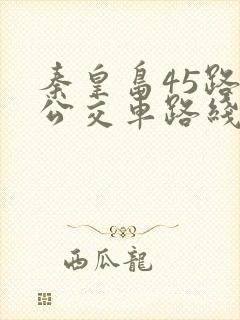 秦皇島45路
公交車路綫
西瓜龍